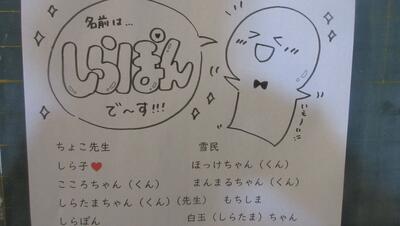 名前は…
しらぽん
で〜す!!!
ちょこ先生
しら子♥
こころちゃん（くん）
しらたまちゃん（くん）（先生）
しらぽん
雪民
ほっけちゃん（くん）
まんまるちゃん（くん）
もちしま
白玉（しらたま）ちゃん